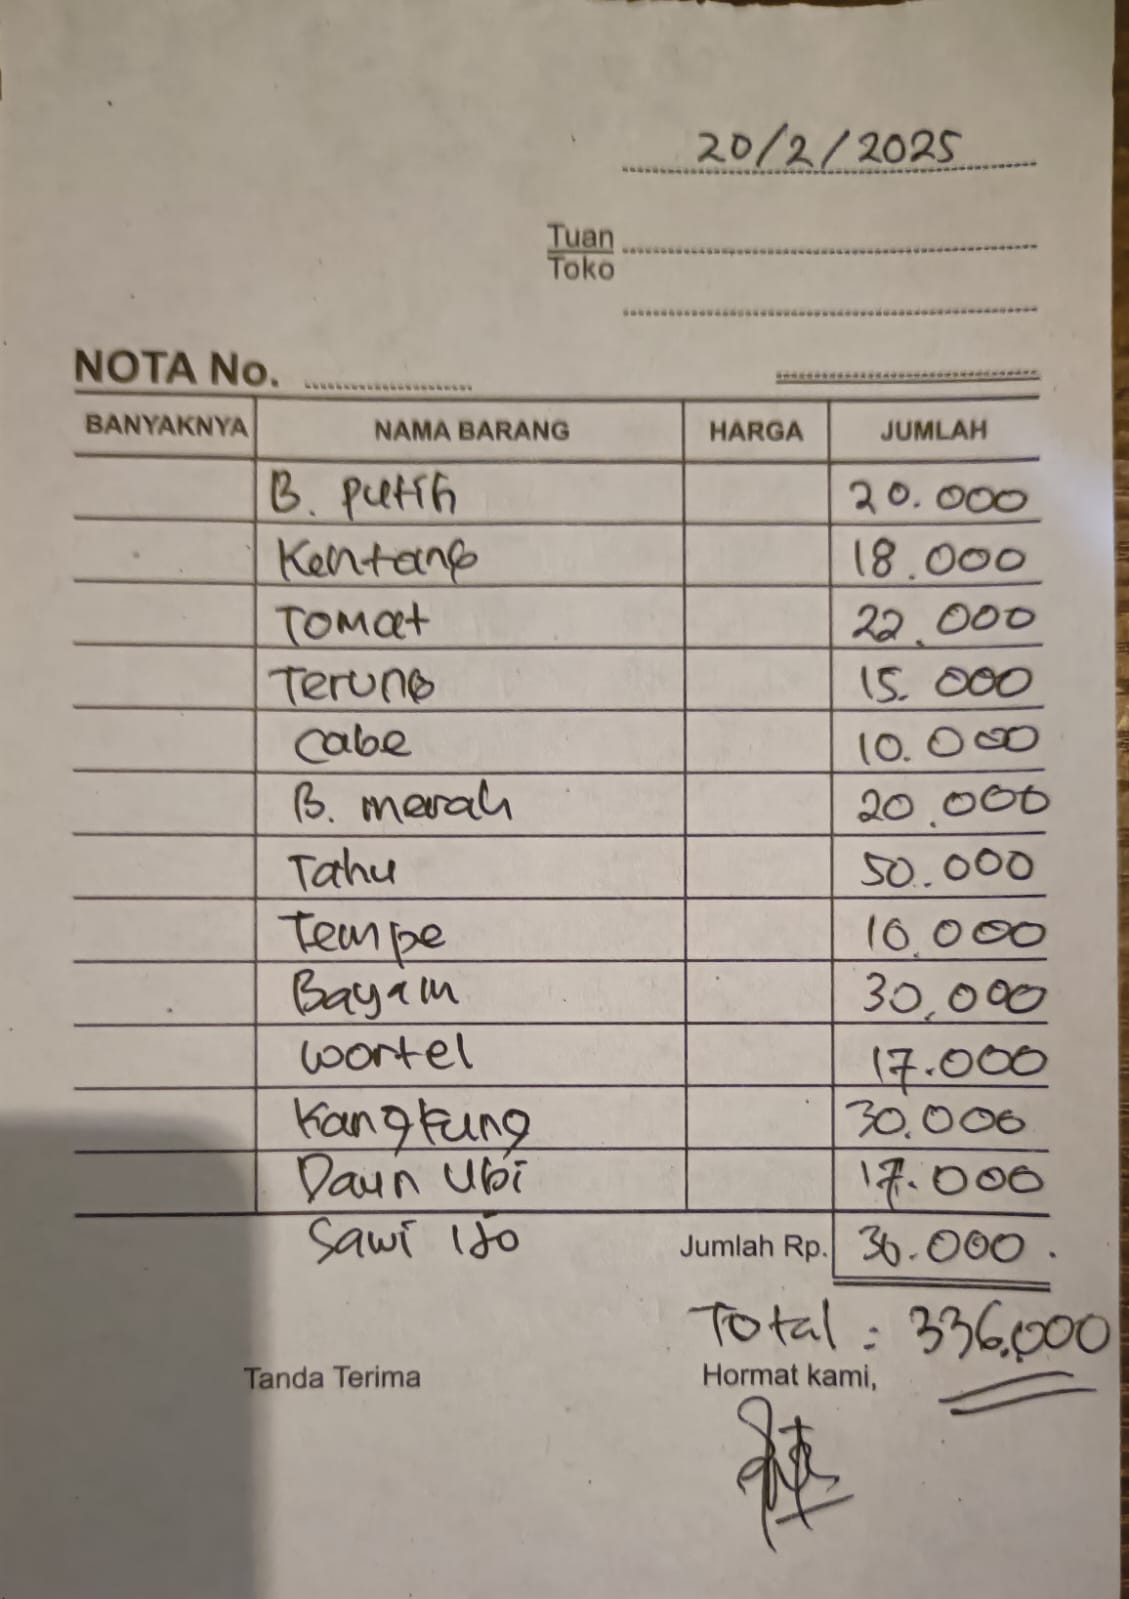 20/2/2025
Tuan
Toko
NOTA No.
BANYAKNYA NAMA BARANG HARGA JUMLAH
B. putih 20.000
Kentang 18.000
Tomat 22.000
Terung 15.000
Cabe 10.000
B. merah 20.000
Tahu 50.000
Tempe 10.000
Bayam 30.000
Wortel 17.000
Kangkung 30.000
Daun Ubi 17.000
Sawi Ijo Jumlah Rp.
Total : 336.000
Tanda Terima Hormat kami,